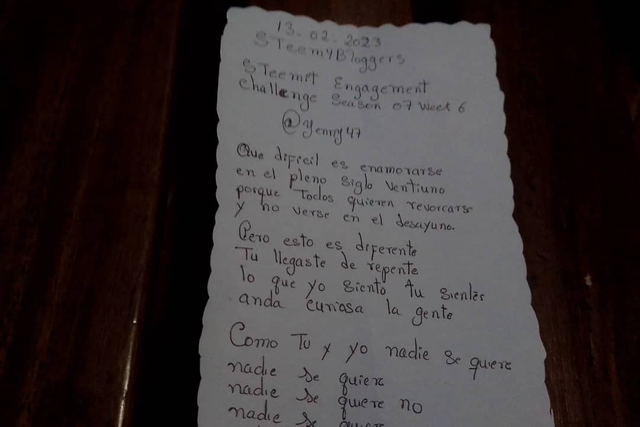 13-02-2023
STeemYBloggers
STeemit Engagement
Challenge Season 07 Week 6
@Yenny47
Que dificil es enamorarse
en el pleno siglo ventiuno
porque Todos quieren revorcarse
y no verse en el desayuno.
Pero esto es diferente
Tu llegaste de repente
lo que yo siento tu sientes
anda curiosa la gente
Como Tu y yo nadie se quiere
nadie se quiere
nadie se quiere no
nadie se quiere